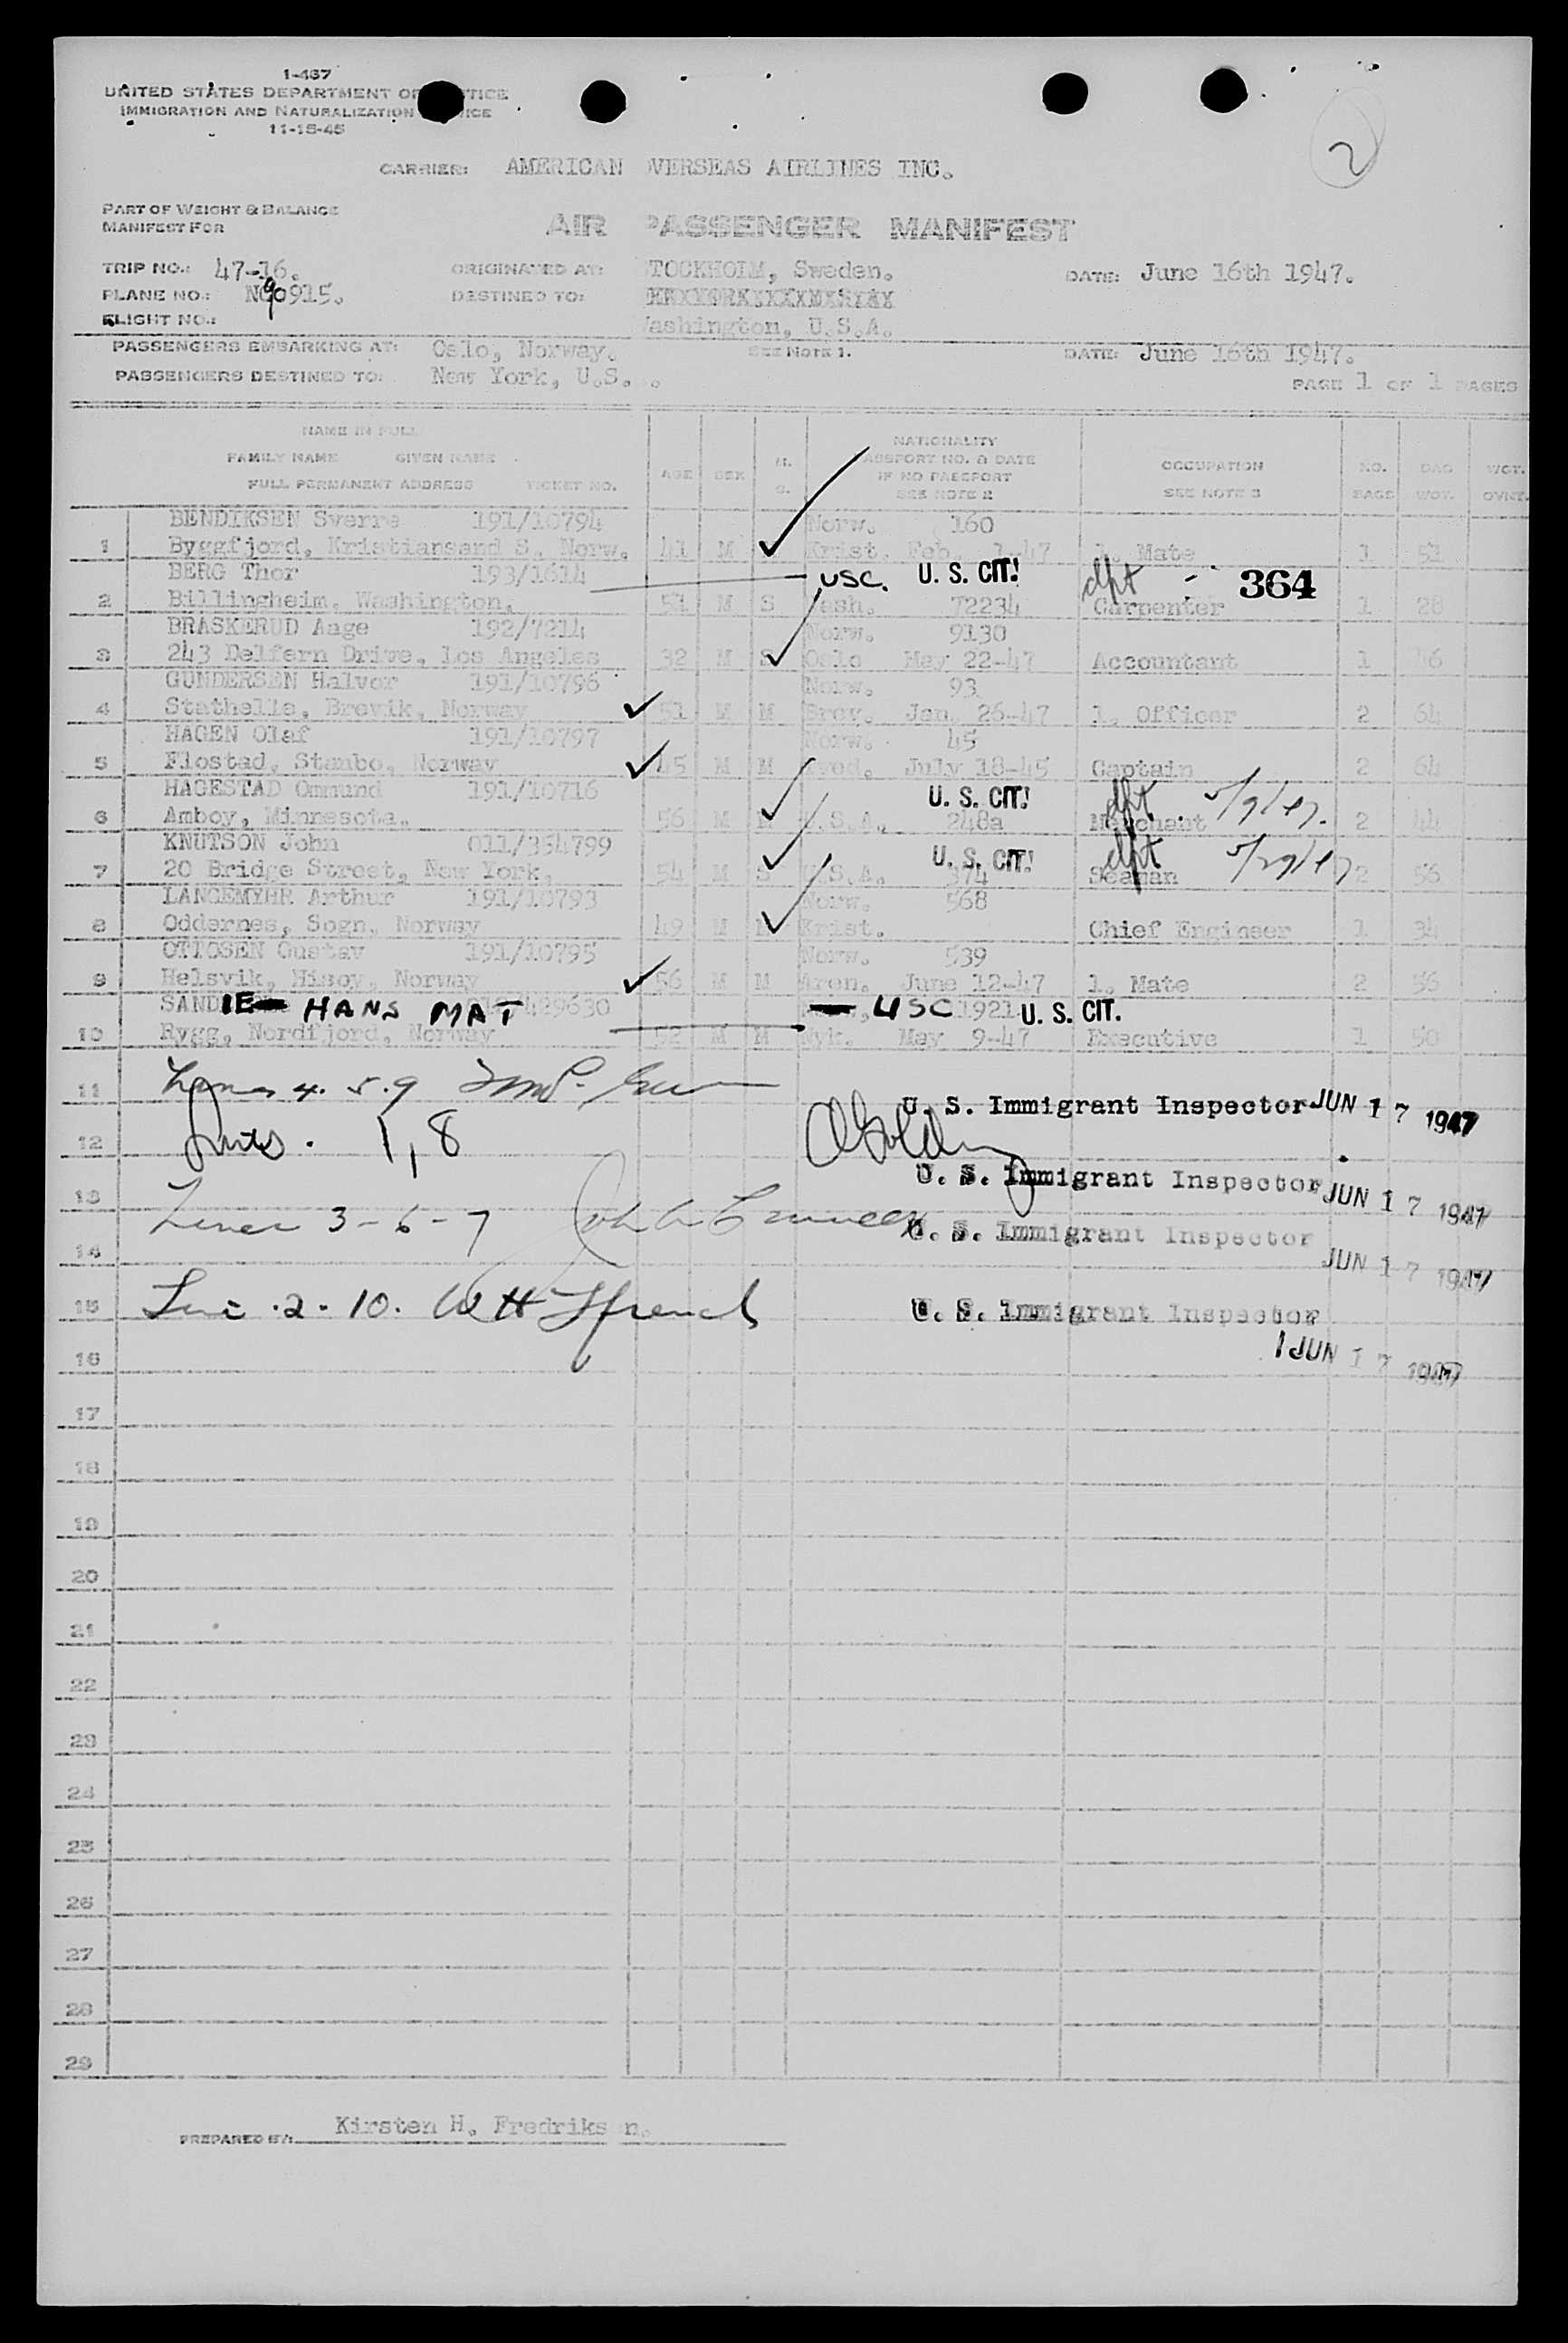 1-467
UNITED STATES DEPARTMENT OF TICE
IMMIGRATION AND NATURALIZATION ICE
11-15-45
2
CARRIER: AMERICAN VERSEAS AIRLINES INC.
PART OF WEIGHT & BALANCE
MANIFEST FOR
AIR PASSENGER MANIFEST
TRIP NO.: 47-16. ORIGINATED AT: TOCKHOLM, Sweden. DATE: June 16th 1947.
PLANE NO.: N90915. DESTINED TO:
FLIGHT NO.: ashington, U.S.A.
PASSENGERS EMBARKING AT: Oslo, Norway. SEE NOTE 1. DATE: June 16th 1947.
PASSENGERS DESTINED TO: New York, U.S. .
PAGE 1 OF 1 PAGES
NAME IN FULL
FAMILY NAME GIVEN NAME
FULL PERMANENT ADDRESS TICKET NO.
AGE SEX M. S.
NATIONALITY
PASSPORT NO. & DATE
IF NO PASSPORT
SEE NOTE 2
OCCUPATION
SEE NOTE 3
NO. BAGS BAG WGT. WGT. OVNT.
BENDIKSEN Sverre 191/10794 Norw. 160
1 Byggfjord, Kristiansand S. Norw. 41 M Krist. Feb. 1-47 1. Mate 1 51
BERG Thor 193/1614 USC. U. S. CIT! dpt 364
2 Billingheim, Washington. 51 M S ash. 72234 Carpenter 1 28
BRASKERUD Aage 192/7214 Norw. 9130
3 243 Delfern Drive, Los Angeles 32 M S Oslo May 22-47 Accountant 1 46
GUNDERSEN Halvor 191/10796 Norw. 93
4 Stathelle, Brevik, Norway 51 M M Brev. Jan. 26-47 1. Officer 2 64
HAGEN Olaf 191/10797 Norw. 45
5 Flostad, Stambo, Norway 45 M M ved. July 18-45 Captain 2 64
HAGESTAD Ommund 191/10716 U. S. CIT! dpt 5/9/47.
6 Amboy, Minnesota. 56 M M .S.A. 248a Merchant 2 44
KNUTSON John 011/334799 U. S. CIT! dpt 5/29/47
7 20 Bridge Street, New York. 54 M S U.S.A. 374 Seaman 2 56
LANGEMYHR Arthur 191/10793 Norw. 568
8 Oddernes, Sogn. Norway 49 M Krist. Chief Engineer 1 34
OTTOSEN Gustav 191/10795 Norw. 539
9 Helsvik, Hisoy, Norway 56 M M Aren. June 12-47 1. Mate 2 56
SANDIE HANS MAT 429630 USC 1921 U. S. CIT.
10 Rygg, Nordfjord, Norway 52 M M Nyk. May 9-47 Executive 1 50
11 4. 5. 9
U. S. Immigrant Inspector JUN 17 1947
12 1, 8
U. S. Immigrant Inspector JUN 17 1947
13 Lines 3-6-7
U. S. Immigrant Inspector
14 JUN 17 1947
15 Line .2. 10. W H French U. S. Immigrant Inspector
16 JUN 17 1947
17
18
19
20
21
22
23
24
25
26
27
28
29
PREPARED BY: Kirsten H. Fredriks n.